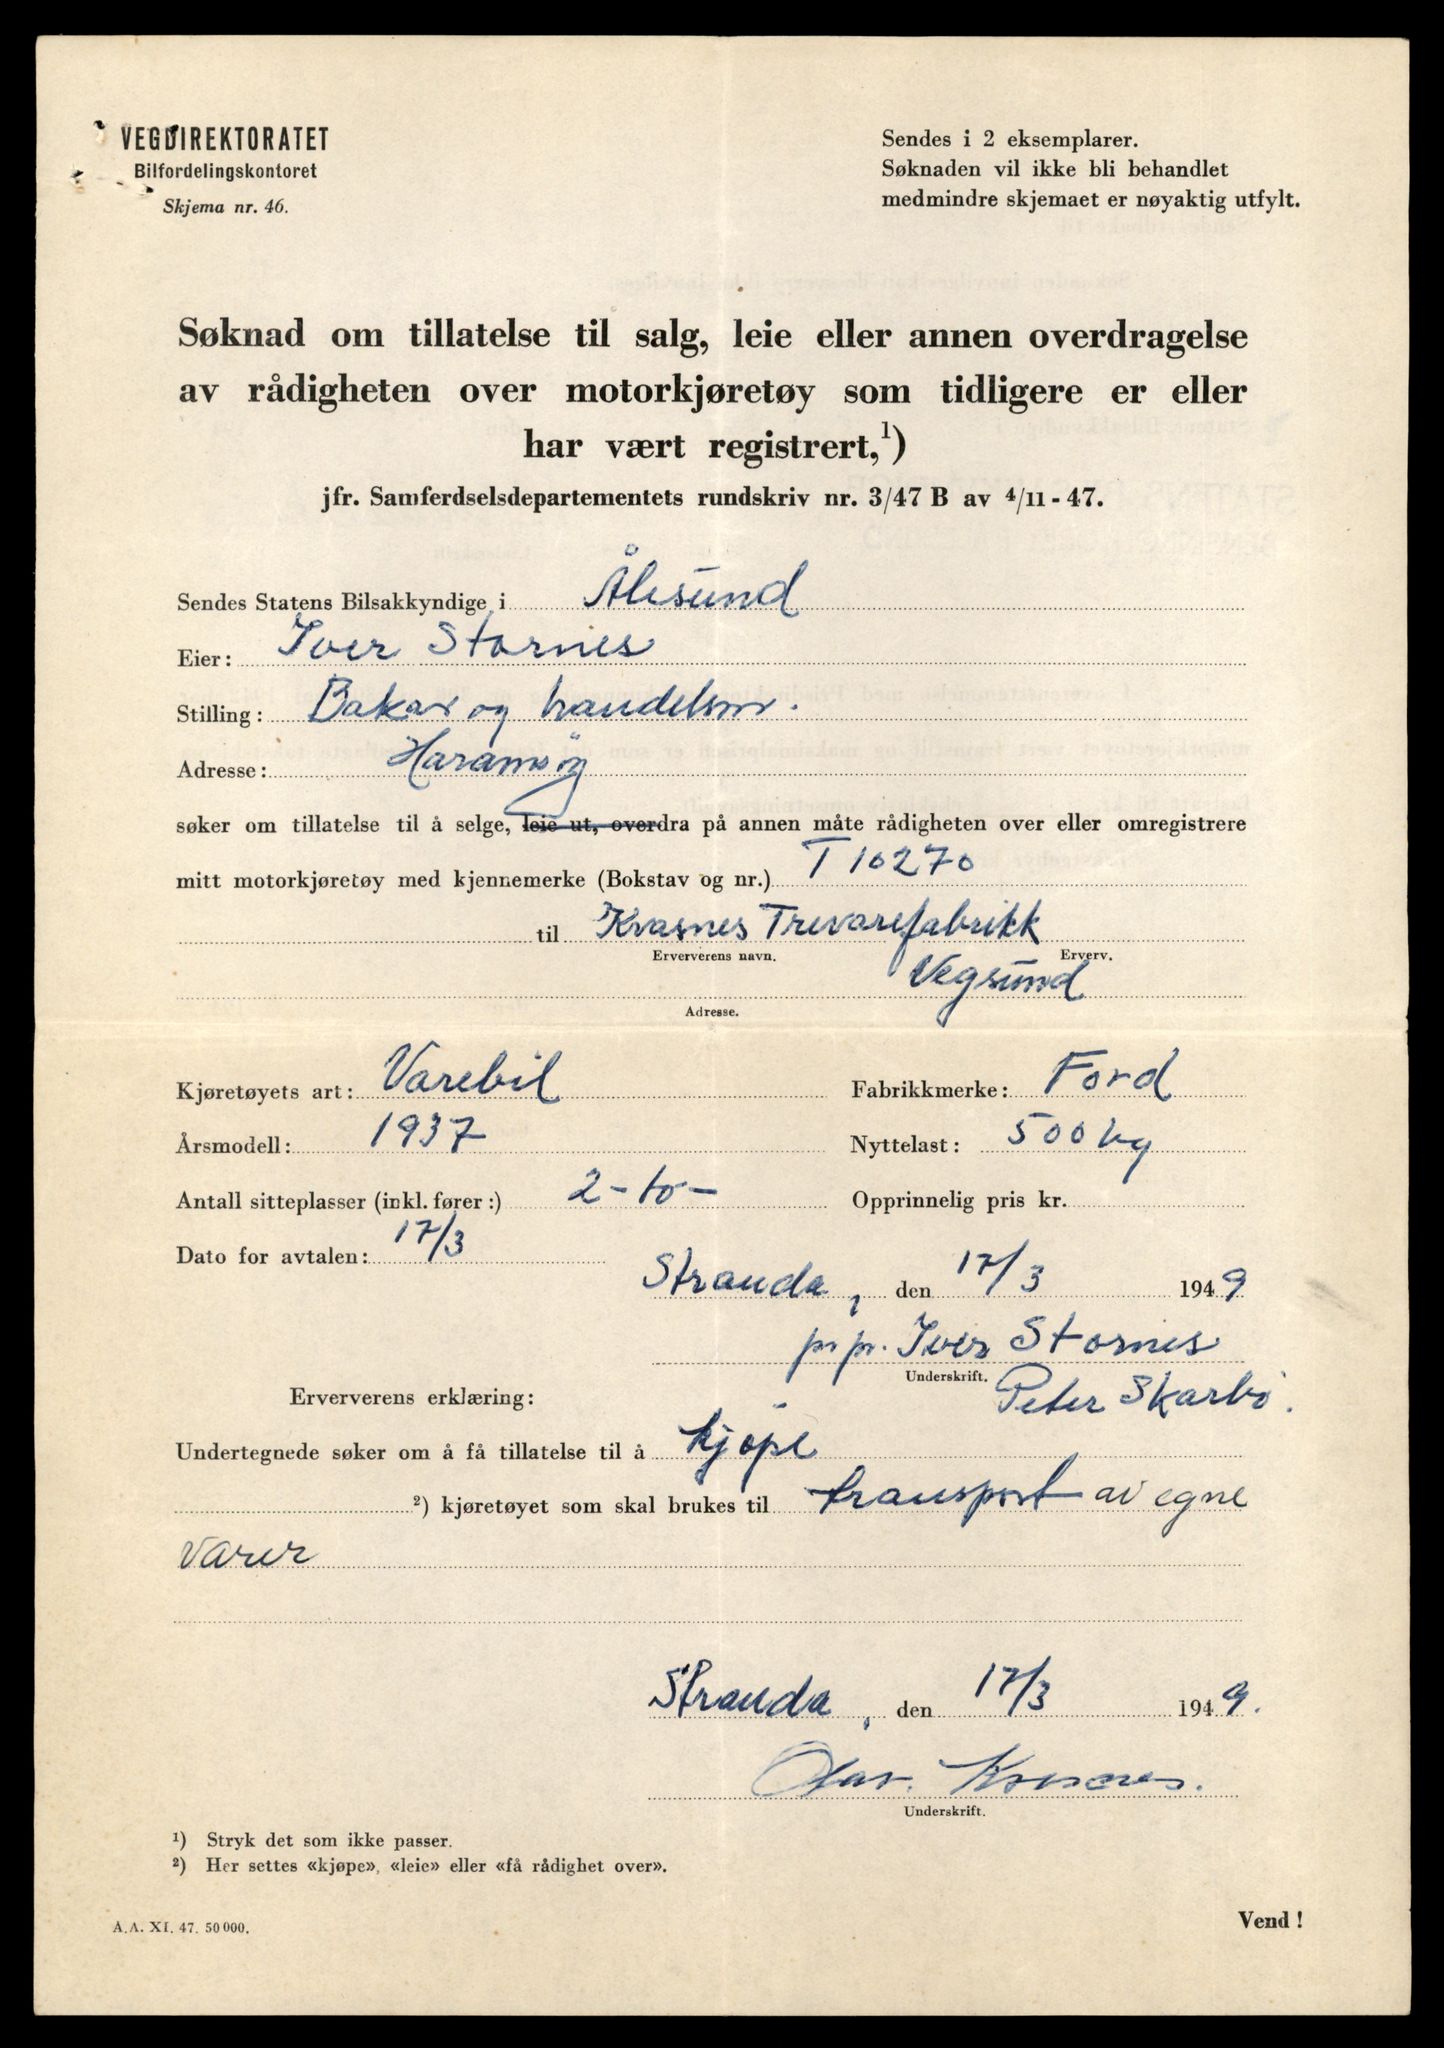 VEGDIREKTORATET
Bilfordelingskontoret
Skjema nr. 46.
Sendes i 2 eksemplarer.
Søknaden vil ikke bli behandlet
medmindre skjemaet er nøyaktig utfylt.
Søknad om tillatelse til salg, leie eller annen overdragelse
av rådigheten over motorkjøretøy som tidligere er eller
har vært registrert,¹)
jfr. Samferdselsdepartementets rundskriv nr. 3/47 B av 4/11 - 47.
Sendes Statens Bilsakkyndige i Ålesund
Eier: Iver Stornes
Stilling: Bakar og handelsm.
Adresse: Haramsøy
søker om tillatelse til å selge, leie ut, overdra på annen måte rådigheten over eller omregistrere
mitt motorkjøretøy med kjennemerke (Bokstav og nr.) T 10270
til Kvasnes Trevarefabrikk
Erververens navn. Erverv.
Vegsund
Adresse.
Kjøretøyets art: Varebil Fabrikkmerke: Ford
Årsmodell: 1937 Nyttelast: 500 kg
Antall sitteplasser (inkl. fører:) 2 - to - Opprinnelig pris kr.
Dato for avtalen: 17/3
Stranda, den 17/3 1949
pr pr. Iver Stornes
Underskrift.
Peter Skarbø.
Erververens erklæring:
Undertegnede søker om å få tillatelse til å kjøpe
²) kjøretøyet som skal brukes til transport av egne
varer
Stranda, den 17/3 1949.
Olav. Kvasnes.
Underskrift.
¹) Stryk det som ikke passer.
²) Her settes «kjøpe», «leie» eller «få rådighet over».
A.A. XI. 47. 50 000.
Vend !